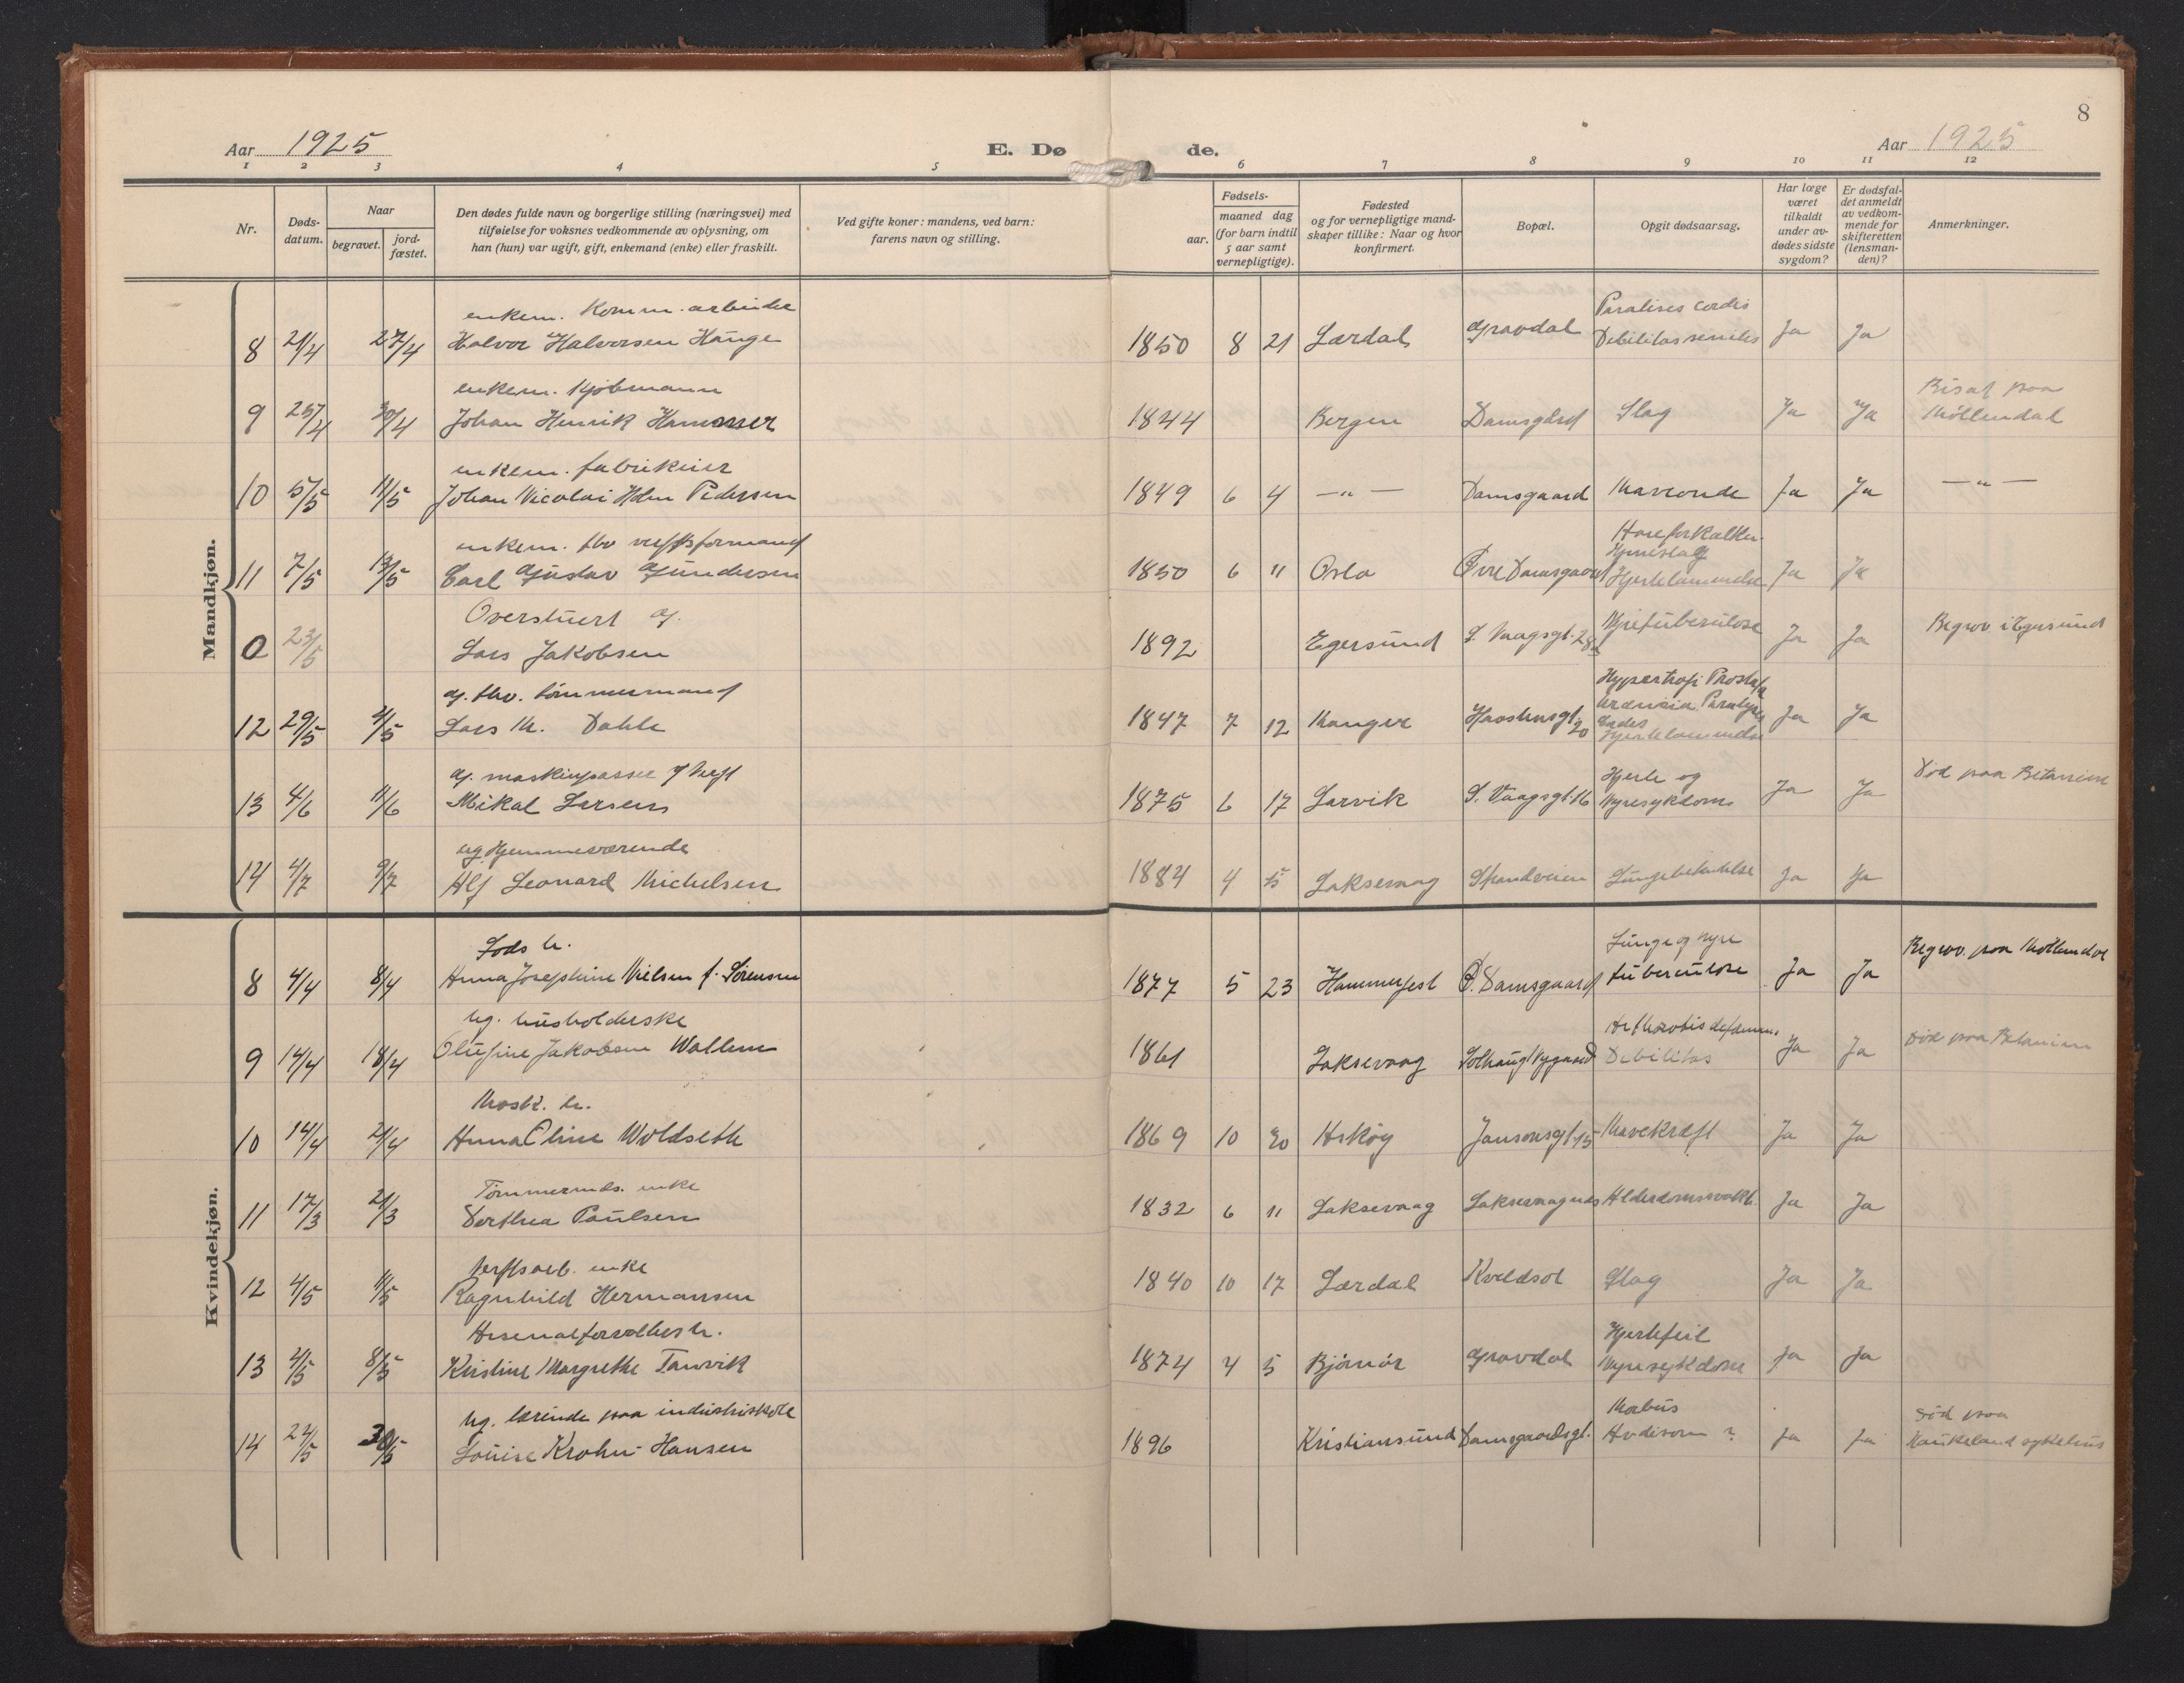 8
Aar 1925
E. Dø
de.
Aar 1925
1 2 3 4 5 6 7 8 9 10 11 12
Nr.
Døds-
datum.
Naar
begravet.
jord-
fæstet.
Den dødes fulde navn og borgerlige stilling (næringsvei) med
tilføielse for voksnes vedkommende av oplysning, om
han (hun) var ugift, gift, enkemand (enke) eller fraskilt.
Ved gifte koner: mandens, ved barn:
farens navn og stilling.
Fødsels-
aar.
maaned dag
(for barn indtil
5 aar samt
vernepligtige).
Fødested
og for vernepligtige mand-
skaper tillike: Naar og hvor
konfirmert.
Bopæl.
Opgit dødsaarsag.
Har læge
været
tilkaldt
under av-
dødes sidste
sygdom?
Er dødsfal-
det anmeldt
av vedkom-
mende for
skifteretten
(lensman-
den)?
Anmerkninger.
Mandkjøn.
enkem. Komm. arbeider Paralises cordis
8 21/4 27/4 Halvor Halvorsen Hauge 1850 8 21 Lærdal Gravdal Debilitas senilis Ja Ja
enkem. Kjøbmann Bisat paa
9 25/4 30/4 Johan Henrik 1844 Bergen Damsgård Slag Ja Ja Møllendal
enkem. fabrikeier
10 5/5 11/5 Johan Nicolai Holm Pedersen 1849 6 4 —"— Damsgaard Maveonde Ja Ja —"—
enkem. fhv verftsformand
Hjerneslag
11 7/5 13/5 Carl Gustav Gundersen 1850 6 11 Oslo Øvre Damsgaard Hjertelammelse Ja Ja
Overstuert g.
0 23/5 Lars Jakobsen 1892 Egersund S. Vaagsgt. 28 Nyretuberulose Ja Ja Begrav i Egersund
g. fhv. tømmermand Hypertrofi Prostata
12 29/5 4/5 Lars M. Dahle 1847 7 12 Manger 20 Uræmia Paralyses Ja Ja
Cordis
Hjertelammelse
g. maskinpasser v/ verft Hjerte og Død paa Betanien
13 4/6 11/6 Mikal Larsen 1875 6 17 Larvik S. Vaagsgt. 16 Nyresykdom Ja Ja
ug Hjemmeværende
14 4/7 9/7 Alf Leonard Michelsen 1884 4 15 Laksevaag Strandveien Lungebetændelse Ja Ja
Kvindekjøn.
Lods h. Lunge og nyre Begrav. paa Møllendal
8 4/4 8/4 Anna Josephine Nielsen f. Sørensen 1877 5 23 Hammerfest Ø. Damsgaard tuberculose Ja Ja
ug. husholderske
9 14/4 18/4 Olufine Jakobsen Wallem 1861 Laksevaag Solhaug Nygaard Debilitas Ja Ja Død paa Betanien
Mask. h.
10 14/4 21/4 Anna Oline Woldseth 1869 10 20 Askøy Jansonsgt 15 Mavekræft Ja Ja
Tømmermds. enke
11 17/3 21/3 Dorthea Paulsen 1832 6 11 Laksevaag Laksevaagnes Alderdomssvakh. Ja Ja
Verftsarb. enke
12 4/5 11/5 Ragnhild Hermansen 1840 10 17 Lærdal Kveldsol Slag Ja Ja
Arsenalforvalters h. Hjertefeil
13 2/5 8/5 Kristine Margrethe Tanvik 1874 4 5 Bjørnør Gravdal Nyresykdom Ja Ja
ug. lærende paa industriskole Morbus Død paa
14 24/5 30/5 Louise Krohn-Hansen 1896 Kristiansund Damsgaardsgt. Addisoni ? Ja Ja Haukeland sykehus